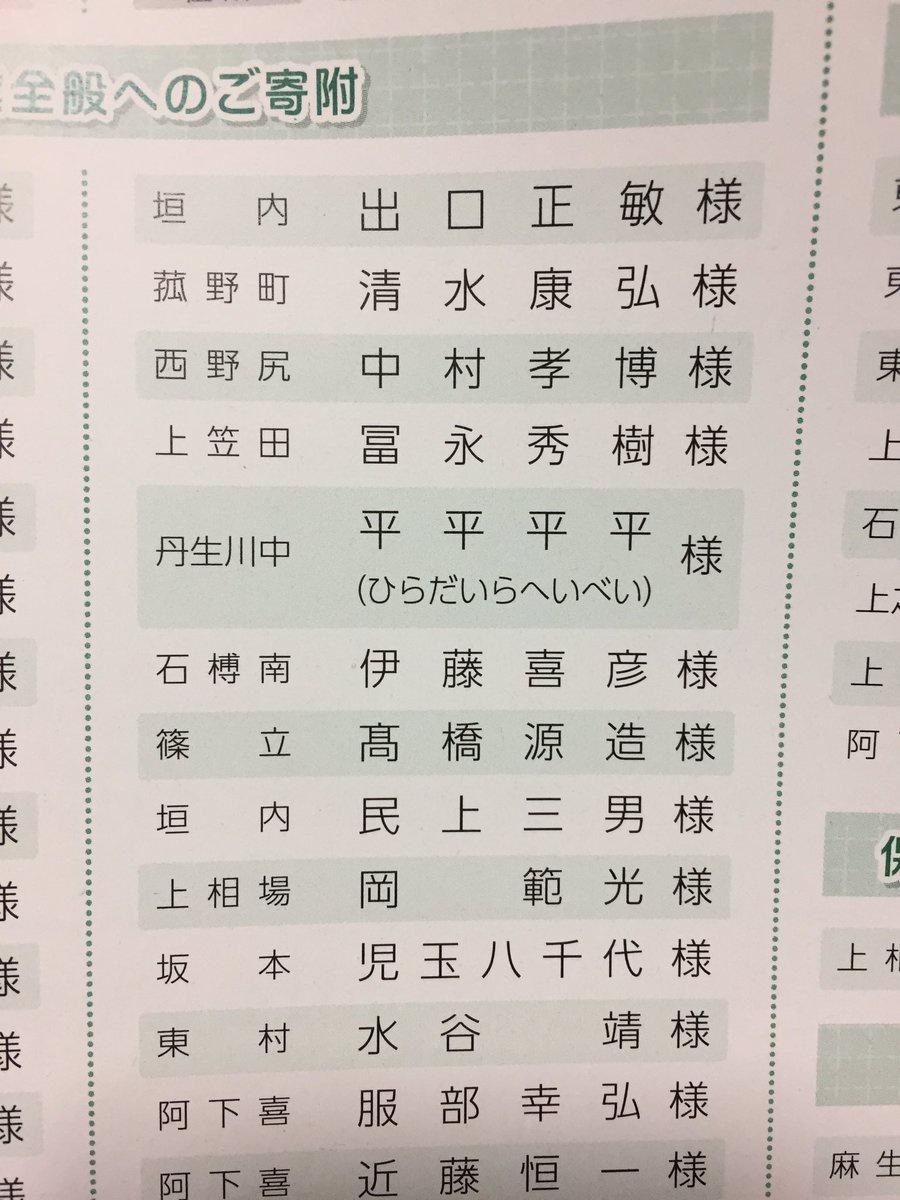 全般へのご寄附
垣内 出口正敏様
菰野町 清水康弘様
西野尻 中村孝博様
上笠田 冨永秀樹様
丹生川中 平平平平様
(ひらだいらへいべい)
石榑南 伊藤喜彦様
篠立 髙橋源造様
垣内 民上三男様
上相場 岡範光様
坂本 児玉八千代様
東村 水谷靖様
阿下喜 服部幸弘様
阿下喜 近藤恒一様
様
様
様
様
様
様
様
様
様
様
様
様
様
東
上
石
上
上
阿
上相
麻生